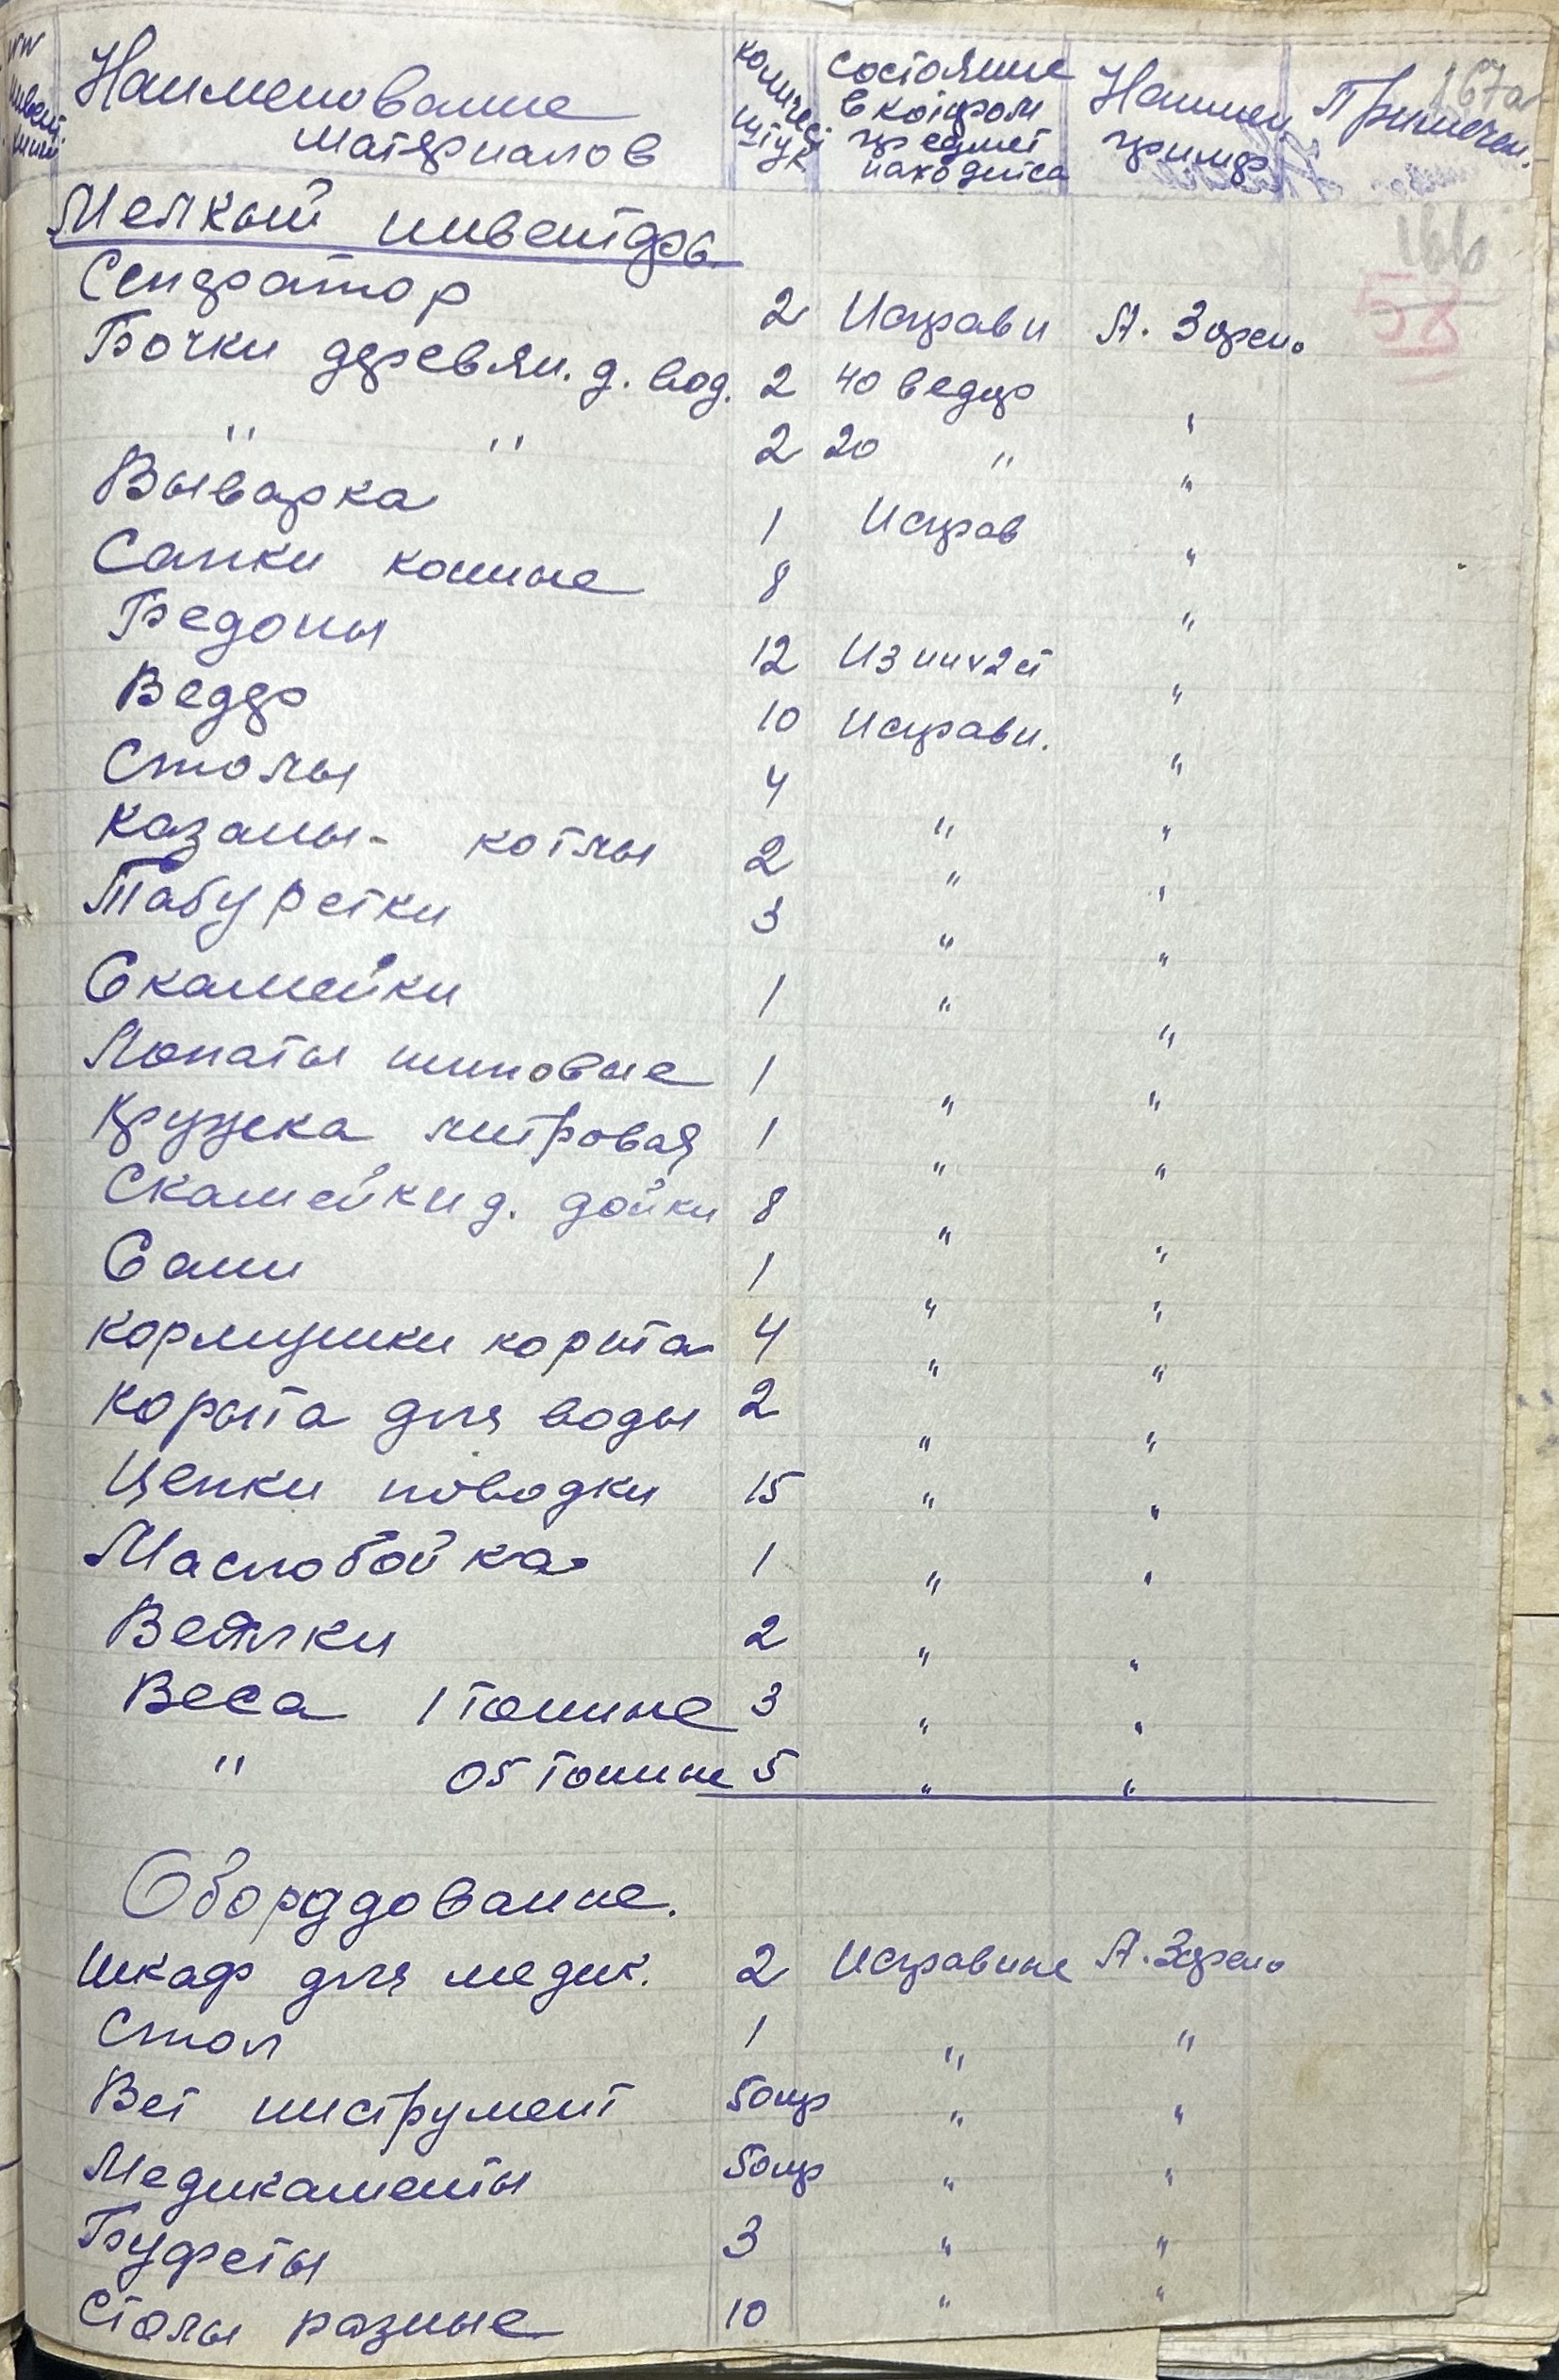 Наименование материалов | количес штук | состояние в котором предмет находится | Наимен | Примечан.
167а
166
58
Мелкий инвентарь
Сепаратор 2 Исправн А. Зерно
Бочки деревян. д. вод. 2 40 ведер "
" " 2 20 " "
Выварка 1 Исправ "
Сапки конные 8 "
Бедоны 12 "
Ведер 10 Исправн. "
Столы 4 " "
Казаны- котлы 2 " "
Табуретки 3 " "
Скамейки 1 " "
Лопаты шиповые 1 " "
Кружка литровая 1 " "
Скамейки д. дойки 8 " "
Сани 1 " "
Кормушки корыта 4 " "
Корыта для воды 2 " "
Цепки поводки 15 " "
Маслобойка 1 " "
Веялки 2 " "
Веса 1 тонные 3 " "
" 05 тонные 5 " "
Оборудование.
Шкаф для медик. 2 Исправные А. Зерно
Стол 1 " "
Вет инструмент 50пр " "
Медикаменты 50пр " "
Буфеты 3 " "
Столы разные 10 " "